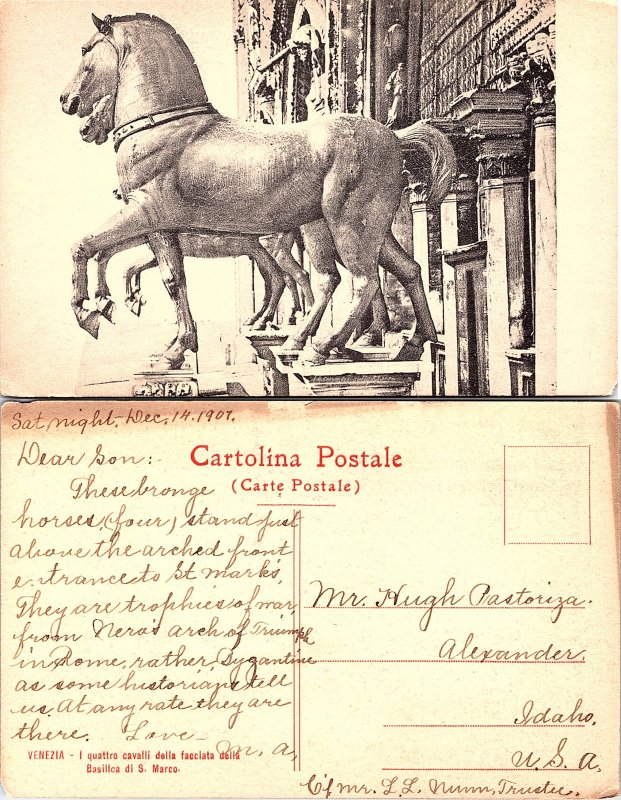 Sat, night, Dec, 14. 1907.
Dear Son:-
Cartolina Postale
(Carte Postale)
These bronze
horses, (four) stand just
above the arched front
entrance to St mark's,
They are trophies of war
from Nero's arch of Triumph
in Rome, rather, Bygantine
as some historians tell
us. At any rate they are
there. Love-
M, a,
VENEZIA - I quattro cavalli della facciata della
Basilica di S. Marco.
Mr. Hugh Pastoriza.
Alexander,
Idaho.
U. S. A,
C/f mr. L. L. Nunn, Trustee.